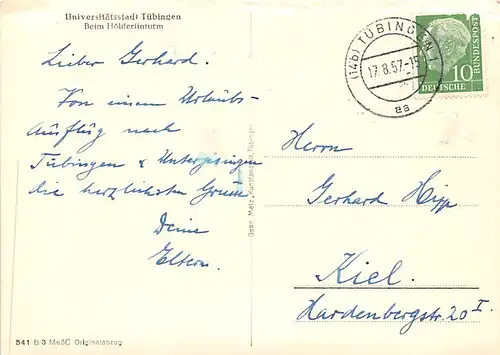 Universitätsstadt Tübingen
Beim Hölderlinturm
Lieber Gerhard!
Von einem Urlaubs-
Ausflug nach
Tübingen & Unterjesingen
die herzlichsten Grüsse
Deine
Eltern.
541 B 3 MeßC Originalabzug
Gebr. Metz, Tübingen
(14b) TÜBINGEN 1
17.8.57.-15
aa
10
DEUTSCHE
BUNDESPOST
Herrn
Gerhard Hipp
Kiel.
Hardenbergstr. 20 I.